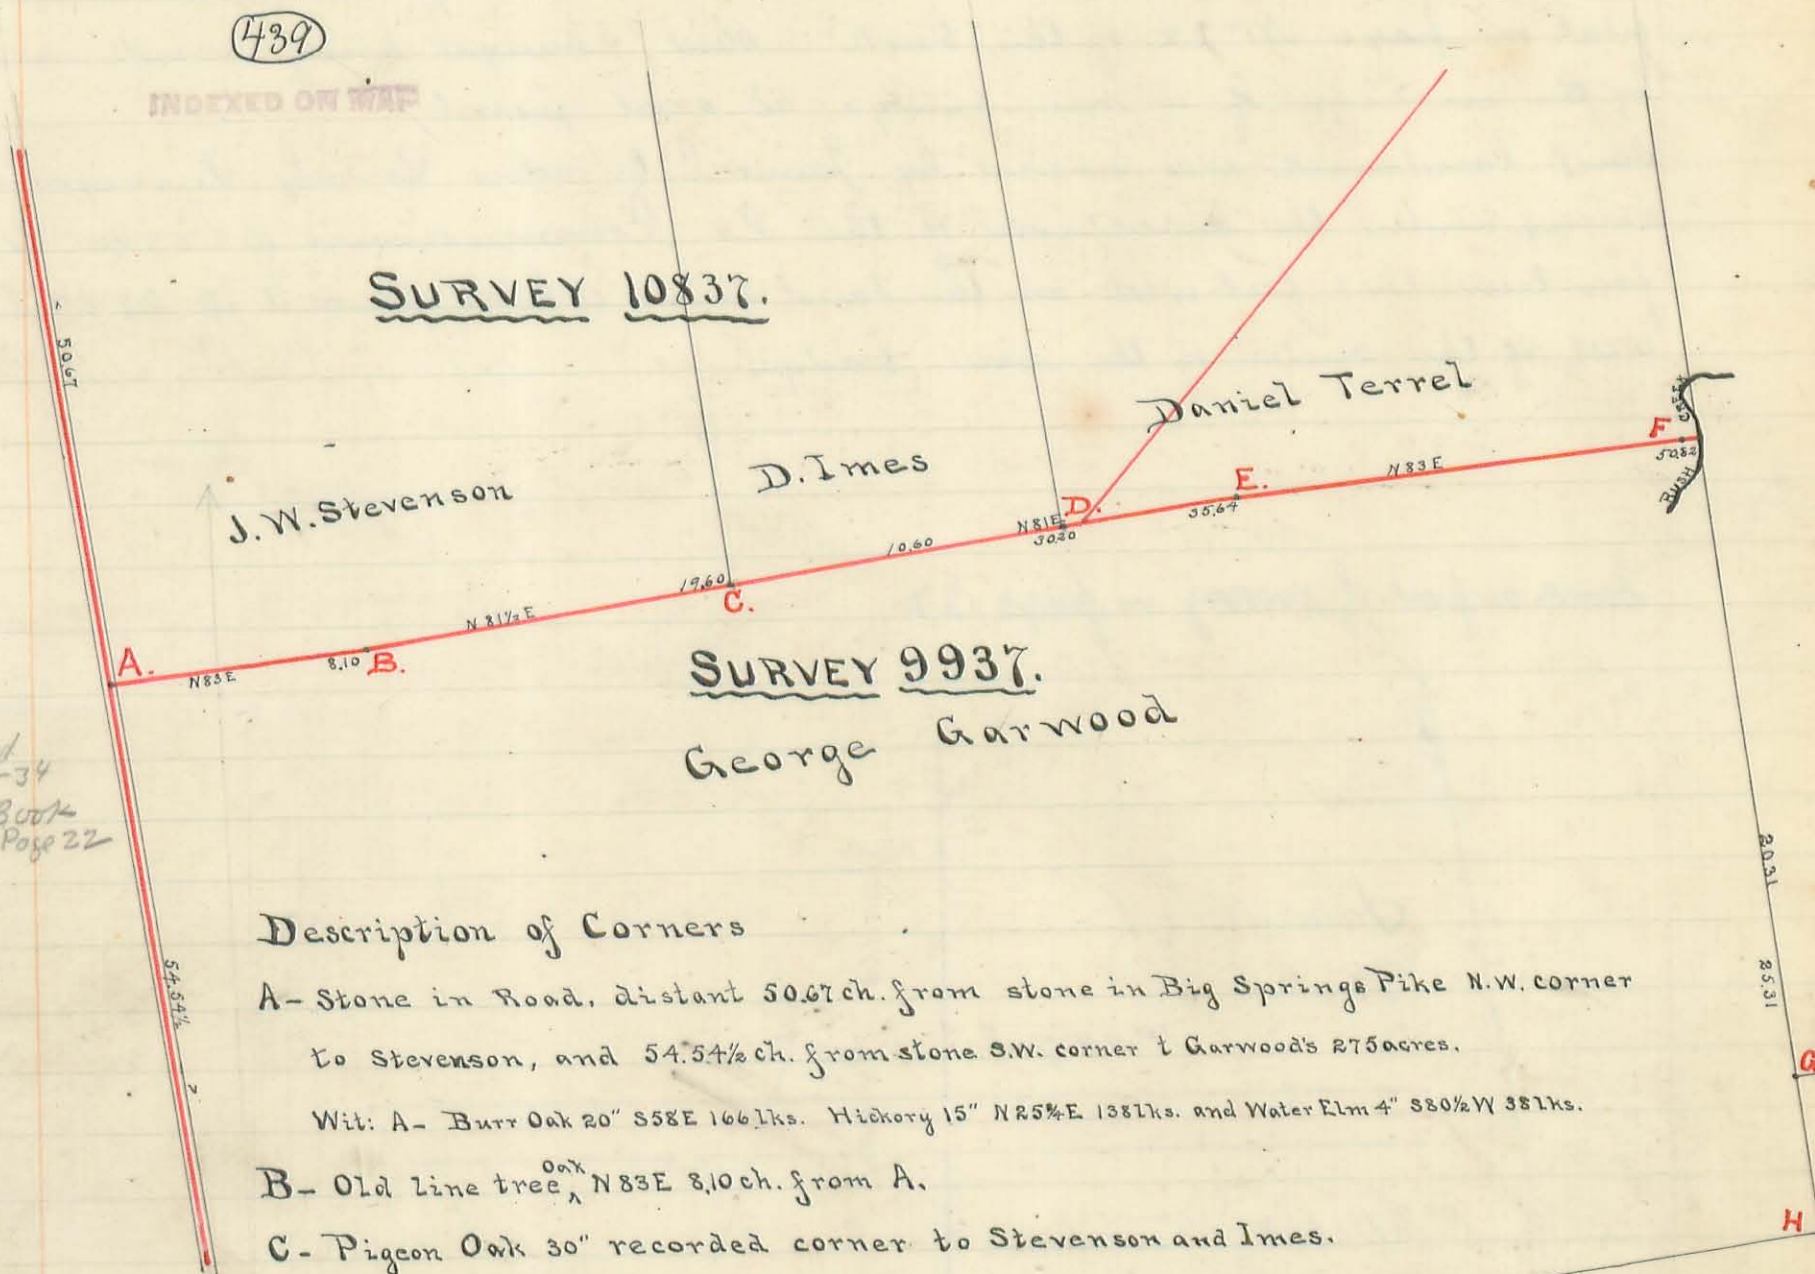 439
INDEXED ON MAP
50.67
SURVEY 10837.
Daniel Terrel
J.W.Stevenson
D. Imes
F
CREEK
50.82
RUSH
N 83 E
E.
35.64
D.
N 81 E
30.20
10.60
19.60
C.
N 81½ E
A.
N 83 E
8.10 B.
SURVEY 9937.
George Garwood
-34
Book
Page 22
20.31
25.31
54.54½
Description of Corners
A- Stone in Road, distant 50.67 ch. from stone in Big Springs Pike N.W. corner
to Stevenson, and 54.54½ ch. from stone S.W. corner t Garwood's 275 acres.
Wit: A- Burr Oak 20" S58E 166 lks. Hickory 15" N25¾E 138 lks. and Water Elm 4" S80½W 38 lks.
B- Old line tree, Oak N83E 8.10 ch. from A.
C- Pigeon Oak 30" recorded corner to Stevenson and Imes.
G
H